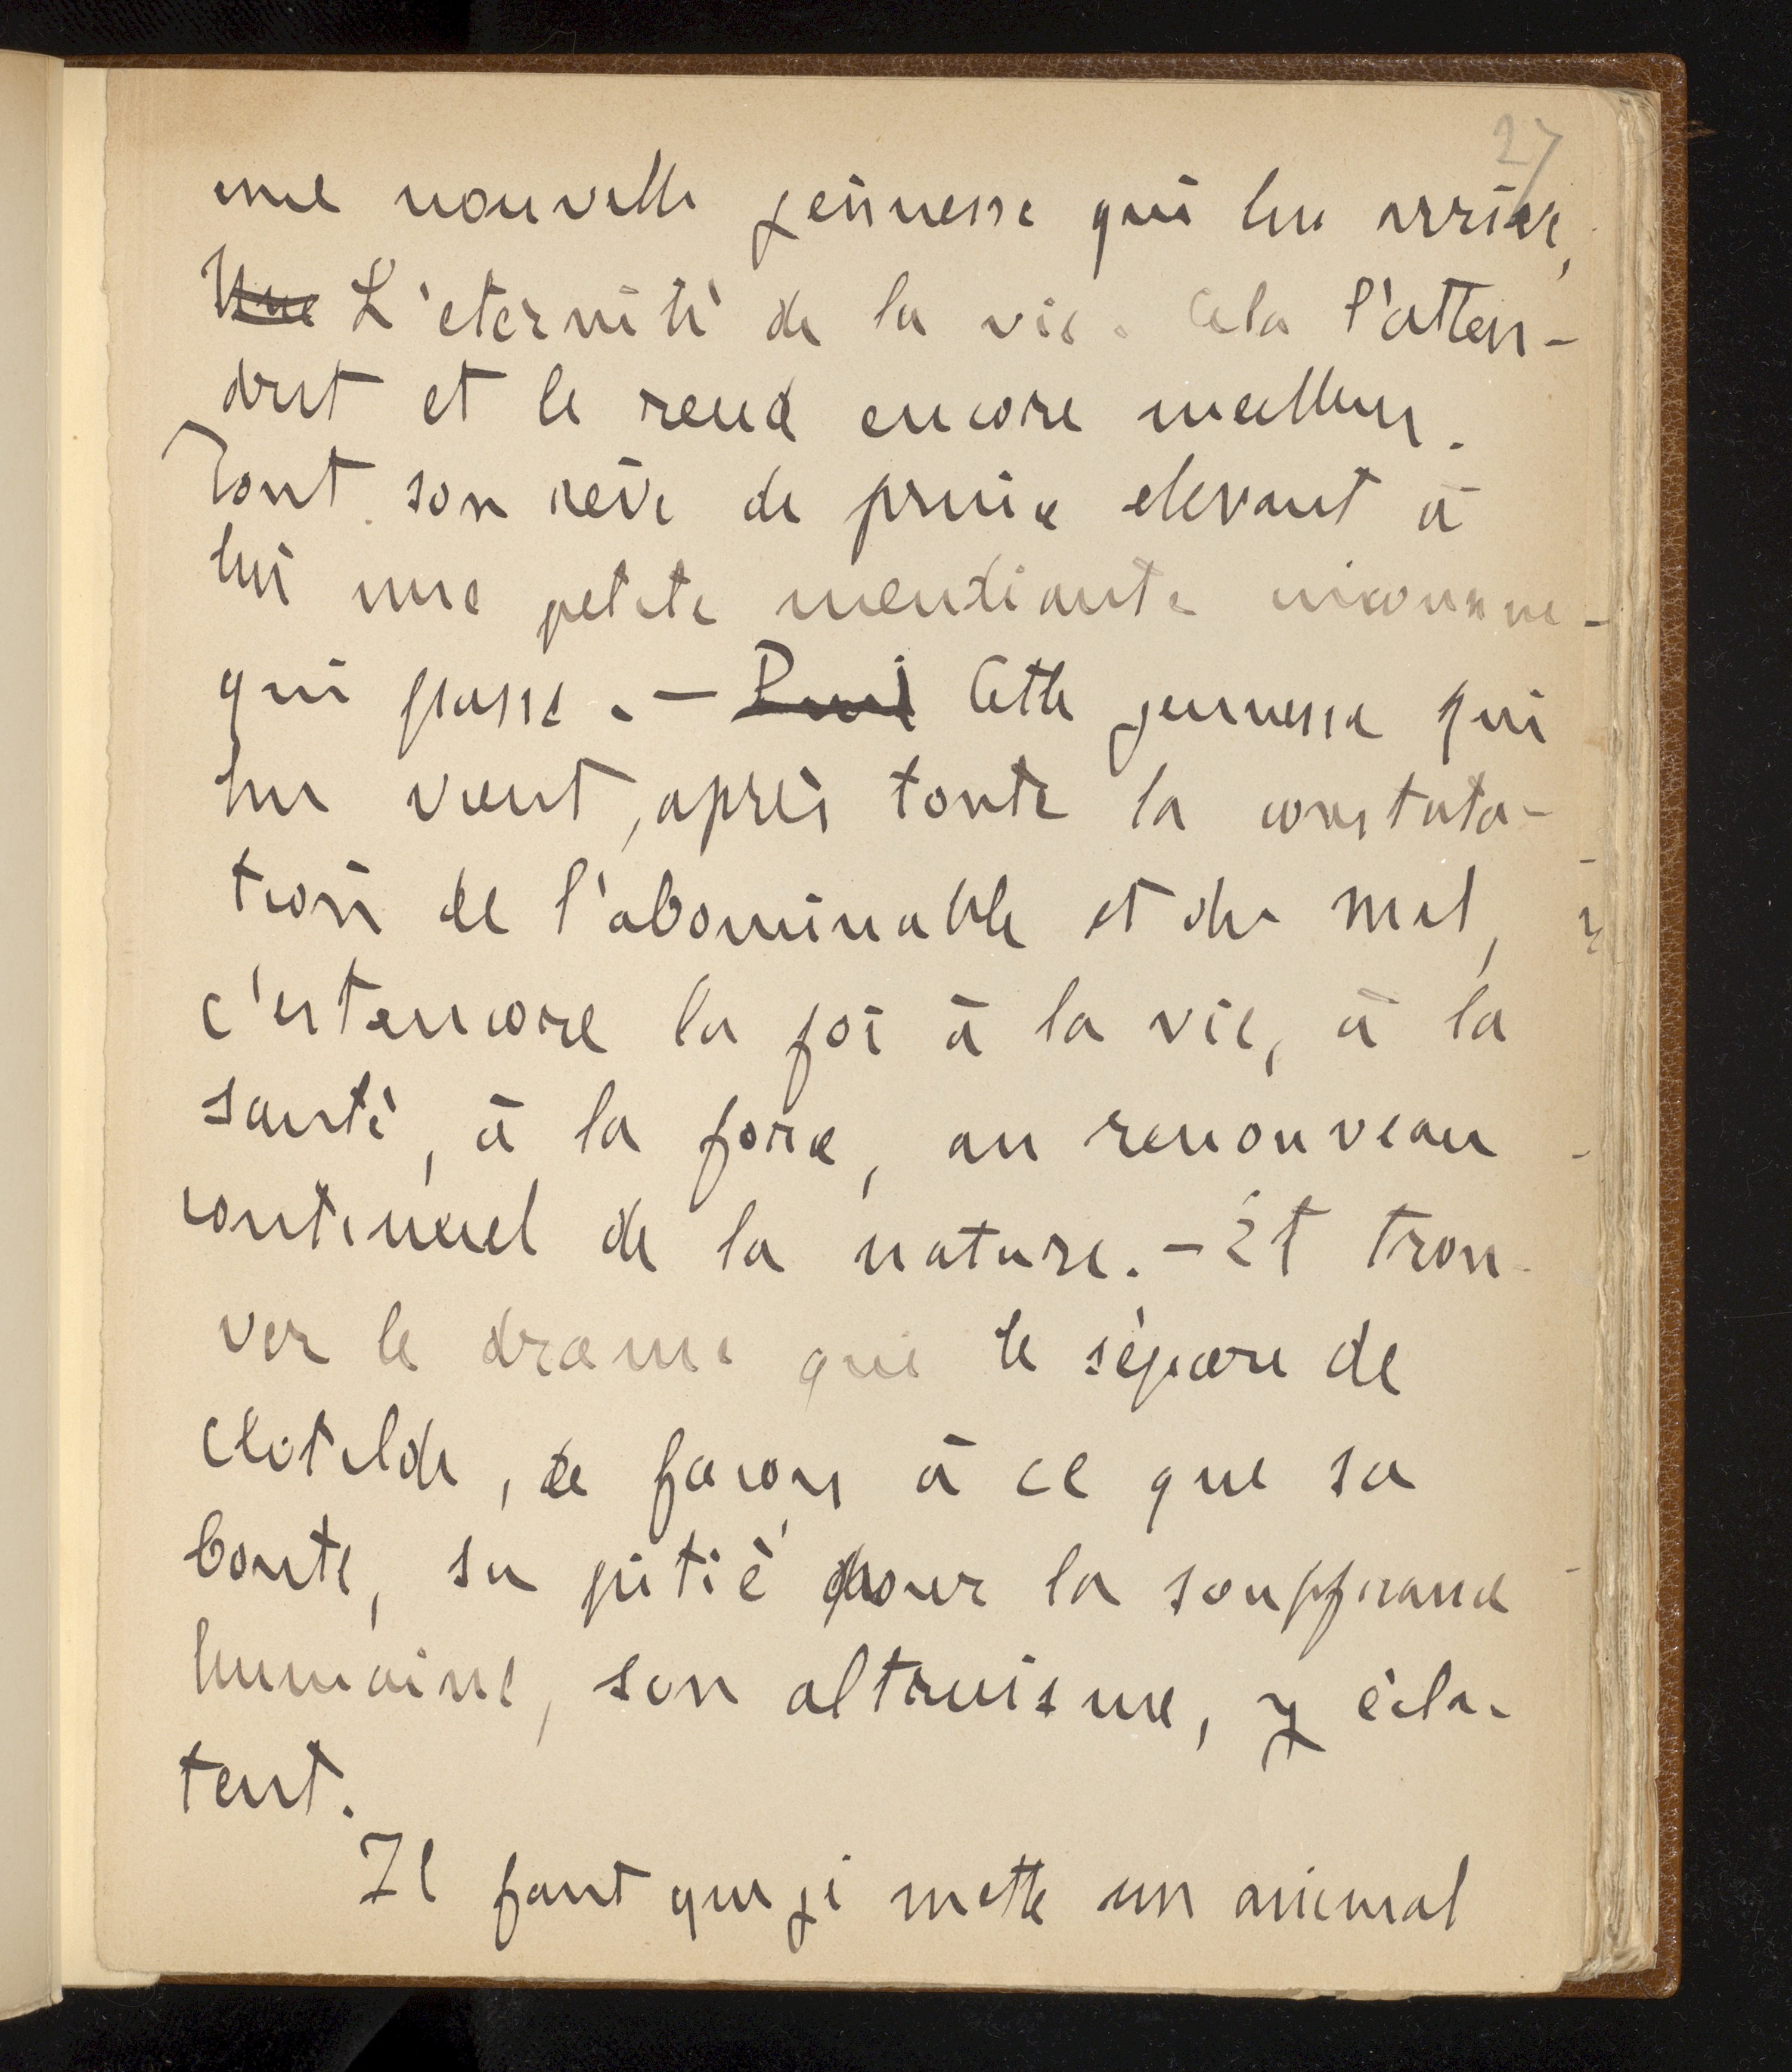 27
une nouvelle jeunesse qui lui arrive,
Une L'éternité de la vie. Cela l'atten-
drit et le rend encore meilleur.
Tout son rêve de prince élevant à
lui une petite mendiante inconnue
qui passe. — Puis Cette jeunesse qui
lui vient, après toute la constata-
tion de l'abominable et du mal,
c'est encore la foi à la vie, à la
santé, à la force, au renouveau
continuel de la nature. — Et trou-
ver le drame qui le sépare de
Clotilde, de façon à ce que sa
bonté, sa pitié pour la souffrance
humaine, son altruisme, y écla-
tent.
Il faut que je mette un animal